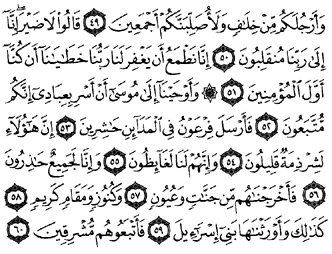 وَأَرْجُلَكُم مِّنْ خِلَٰفٍ وَلَأُصَلِّبَنَّكُمْ أَجْمَعِينَ ٤٩ قَالُوا۟ لَا ضَيْرَ إِنَّآ
إِلَىٰ رَبِّنَا مُنقَلِبُونَ ٥٠ إِنَّا نَطْمَعُ أَن يَغْفِرَ لَنَا رَبُّنَا خَطَٰيَٰنَآ أَن كُنَّآ
أَوَّلَ ٱلْمُؤْمِنِينَ ٥١ ۞ وَأَوْحَيْنَآ إِلَىٰ مُوسَىٰٓ أَنْ أَسْرِ بِعِبَادِىٓ إِنَّكُم
مُّتَّبَعُونَ ٥٢ فَأَرْسَلَ فِرْعَوْنُ فِى ٱلْمَدَآئِنِ حَٰشِرِينَ ٥٣ إِنَّ هَٰٓؤُلَآءِ
لَشِرْذِمَةٌ قَلِيلُونَ ٥٤ وَإِنَّهُمْ لَنَا لَغَآئِظُونَ ٥٥ وَإِنَّا لَجَمِيعٌ حَٰذِرُونَ
٥٦ فَأَخْرَجْنَٰهُم مِّن جَنَّٰتٍ وَعُيُونٍ ٥٧ وَكُنُوزٍ وَمَقَامٍ كَرِيمٍ ٥٨
كَذَٰلِكَ وَأَوْرَثْنَٰهَا بَنِىٓ إِسْرَٰٓءِيلَ ٥٩ فَأَتْبَعُوهُم مُّشْرِقِينَ ٦٠